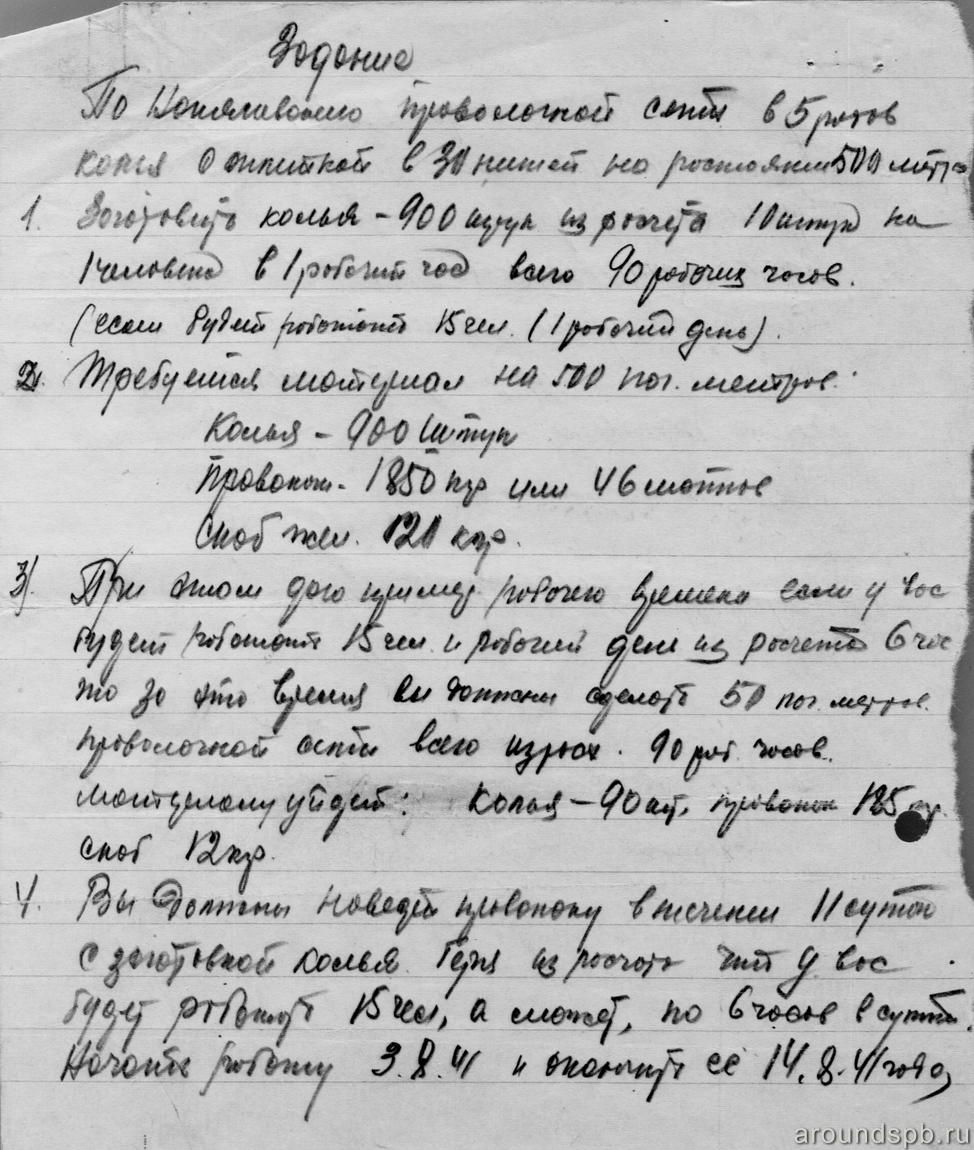 Задание
По Натягиванию проволочной сети в 5 рядов
колья с оплеткой в 30 нитей на растоянии 500 метр
1. Заготовить колья – 900 штук из расчета 10 штук на
1 человека в 1 рабочий час всего 90 рабочих часов.
(если будет работать 15 чел. (1 рабочий день).
2. Требуется материал на 500 пог. метров.
Колья – 900 Штук
Провол. – 1850 кгр или 46 мотков
Скоб жел. 120 кгр.
3) При этом даю пример рабочего времени если у вас
будет работать 15 чел. и рабочий день из расчета 6 час
то за это время вы должны сделать 50 пог. метров.
проволочной сети всего израсх. 90 раб. часов.
материалу уйдет: Колья – 90 шт, проволок 185 кгр.
скоб 12 кгр.
4. Вы Должны наведет проволоку в течении 11 суток
с заготовкой колья. из расчета что у вас
будет работать 15 чел, а может, по 6 часов в сутки.
Начать работу 3.8.41 и окончить ее 14.8.41 года
aroundspb.ru